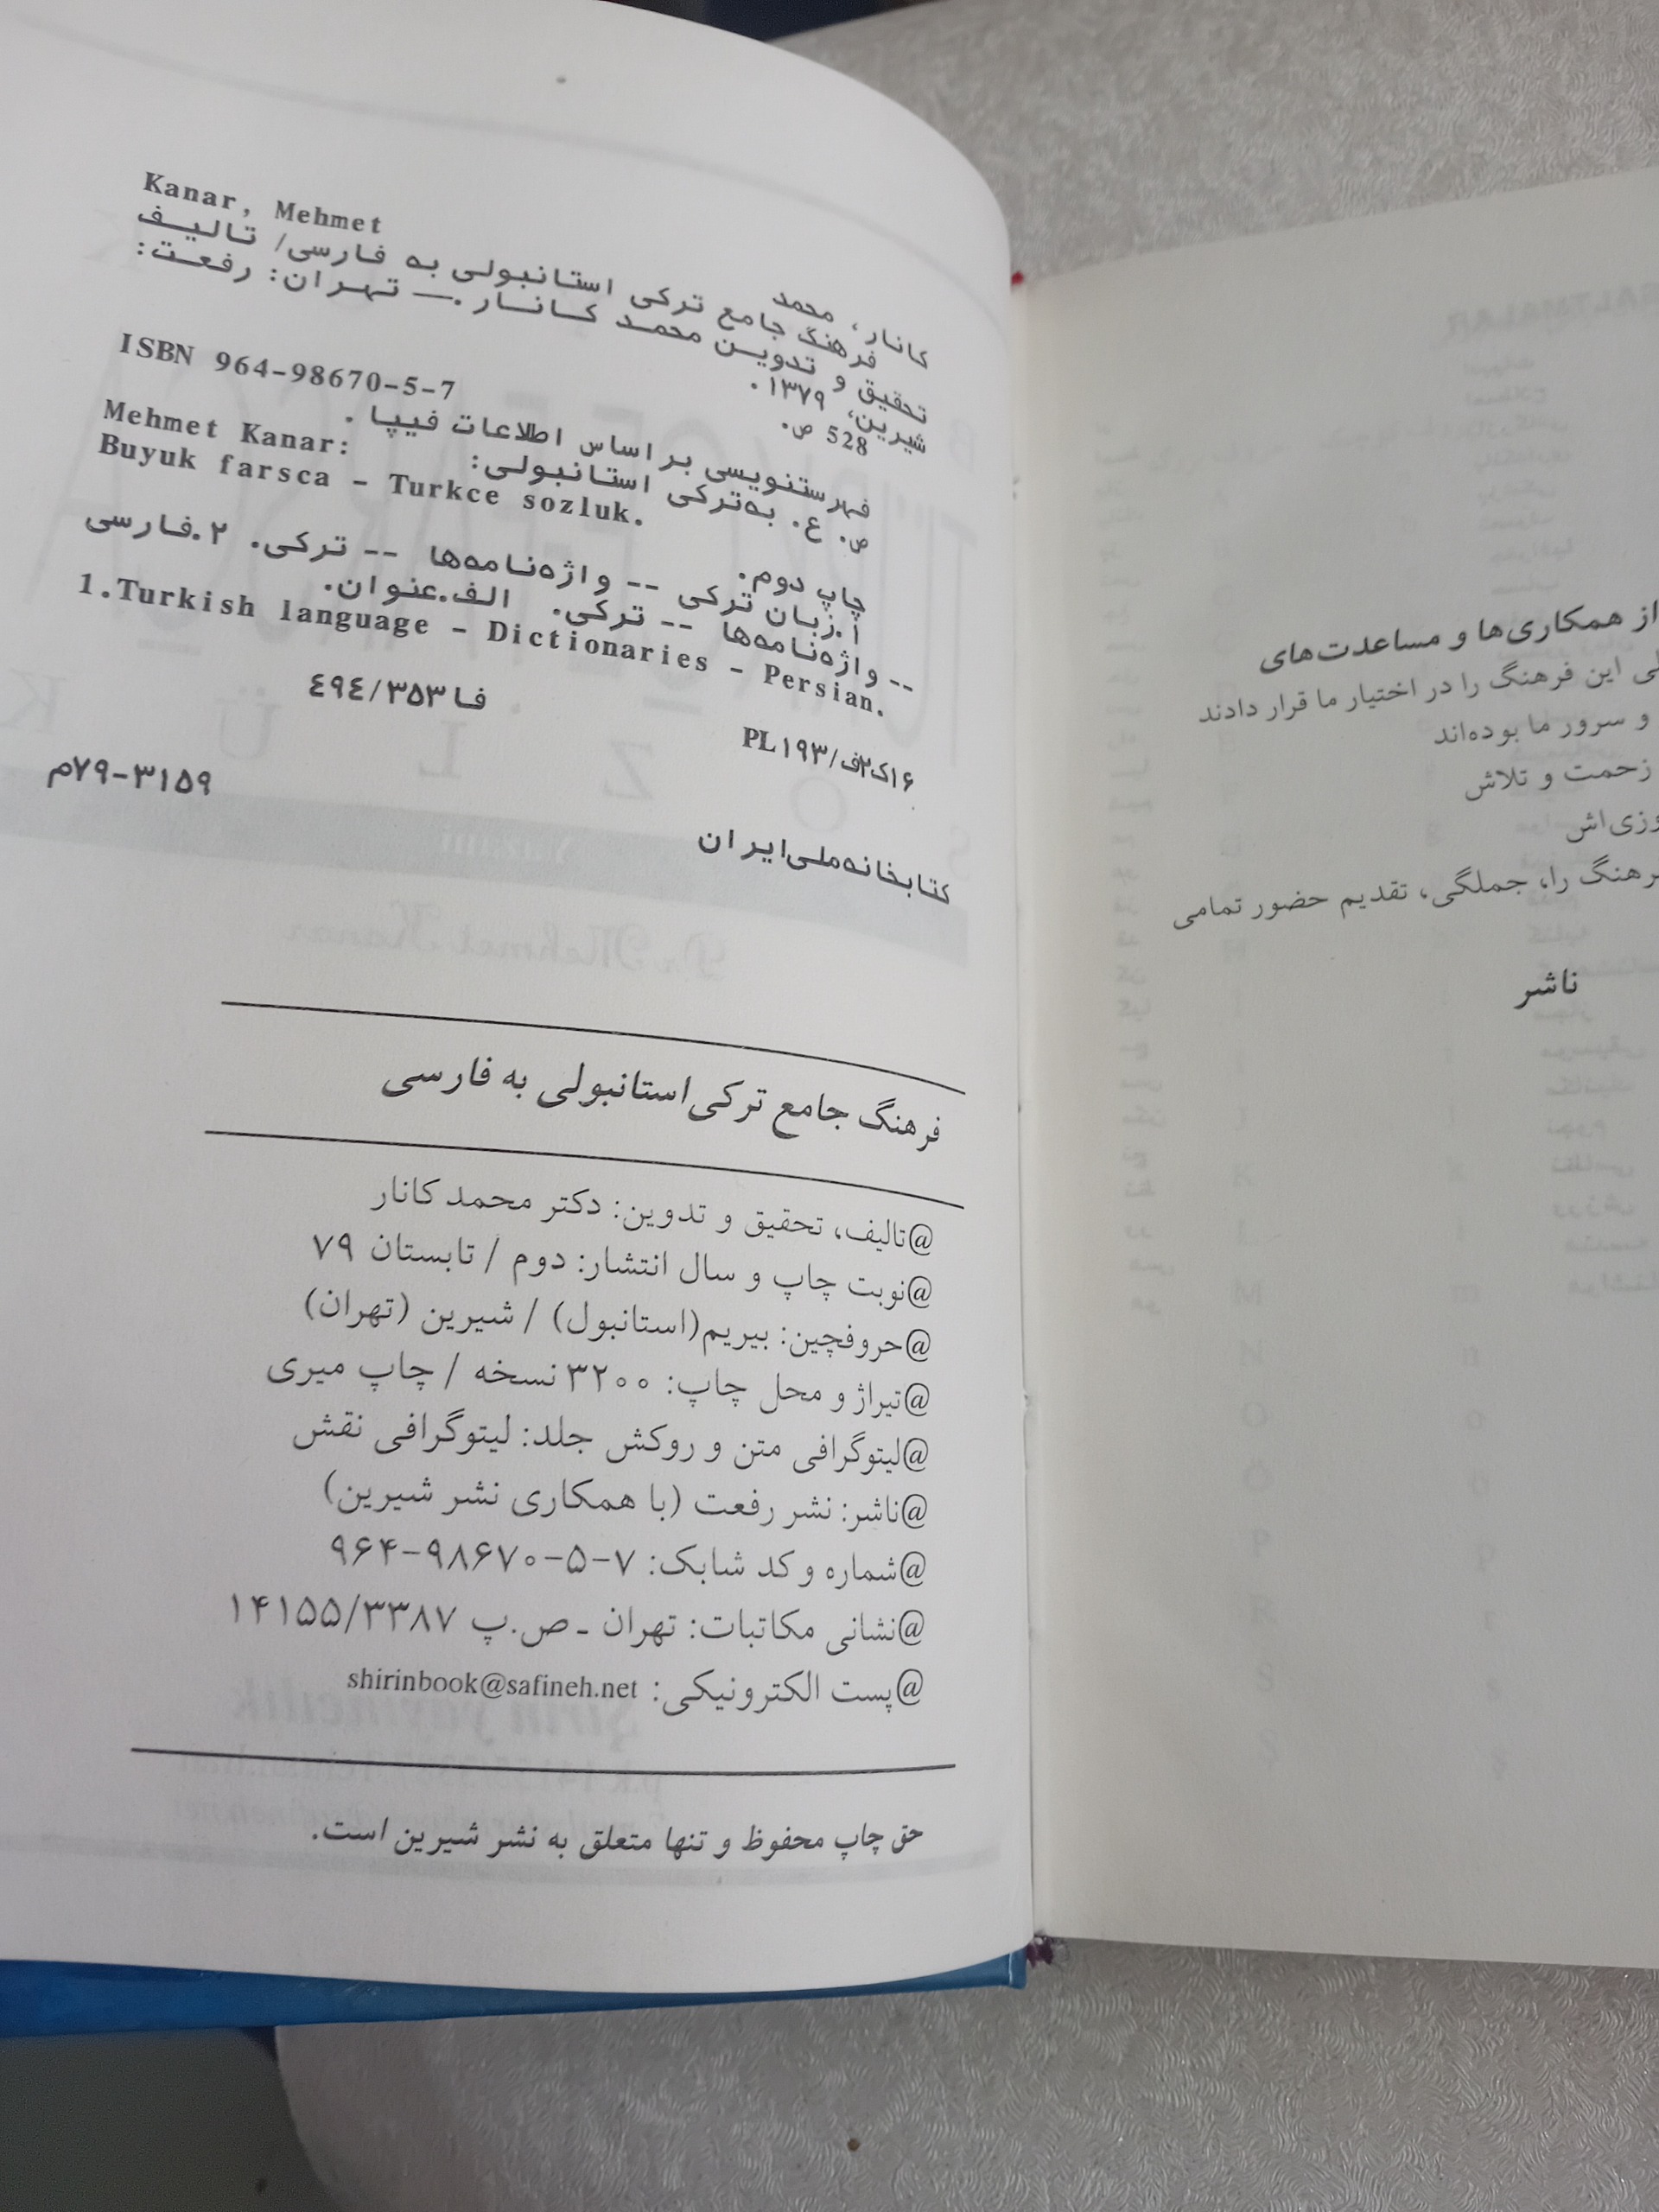 Kanar, Mehmet
کانار، محمد
فرهنگ جامع ترکی استانبولی به فارسی/ تالیف
تحقیق و تدوین محمد کانار .— تهران: رفعت:
شیرین، ۱۳۷۹.
528 ص.
ISBN 964-98670-5-7
فهرستنویسی بر اساس اطلاعات فیپا .
ص. ع. به‌ترکی استانبولی: Mehmet Kanar:
Buyuk farsca - Turkce sozluk.
چاپ دوم.
۱.زبان ترکی -- واژه‌نامه‌ها -- ترکی. ۲.فارسی
-- واژه‌نامه‌ها -- ترکی. الف.عنوان.
1.Turkish language - Dictionaries - Persian.
فا ۴۹۴/۳۵۳
PL ۱۹۳/ف۲ک۱۶
م۷۹-۳۱۵۹
کتابخانه‌ملی‌ایران
فرهنگ جامع ترکی‌استانبولی به فارسی
@تالیف، تحقیق و تدوین: دکتر محمد کانار
@نوبت چاپ و سال انتشار: دوم / تابستان ۷۹
@حروفچین: بیریم(استانبول) / شیرین (تهران)
@تیراژ و محل چاپ: ۳۲۰۰ نسخه / چاپ میری
@لیتوگرافی متن و روکش جلد: لیتوگرافی نقش
@ناشر: نشر رفعت (با همکاری نشر شیرین)
@شماره و کد شابک: ۷-۵-۹۸۶۷۰-۹۶۴
@نشانی مکاتبات: تهران ـ ص.پ ۱۴۱۵۵/۳۳۸۷
@پست الکترونیکی: shirinbook@safineh.net
حق چاپ محفوظ و تنها متعلق به نشر شیرین است.
از همکاری‌ها و مساعدت‌های
این فرهنگ را در اختیار ما قرار دادند
و سرور ما بوده‌اند
زحمت و تلاش
را، جملگی، تقدیم حضور تمامی
ناشر